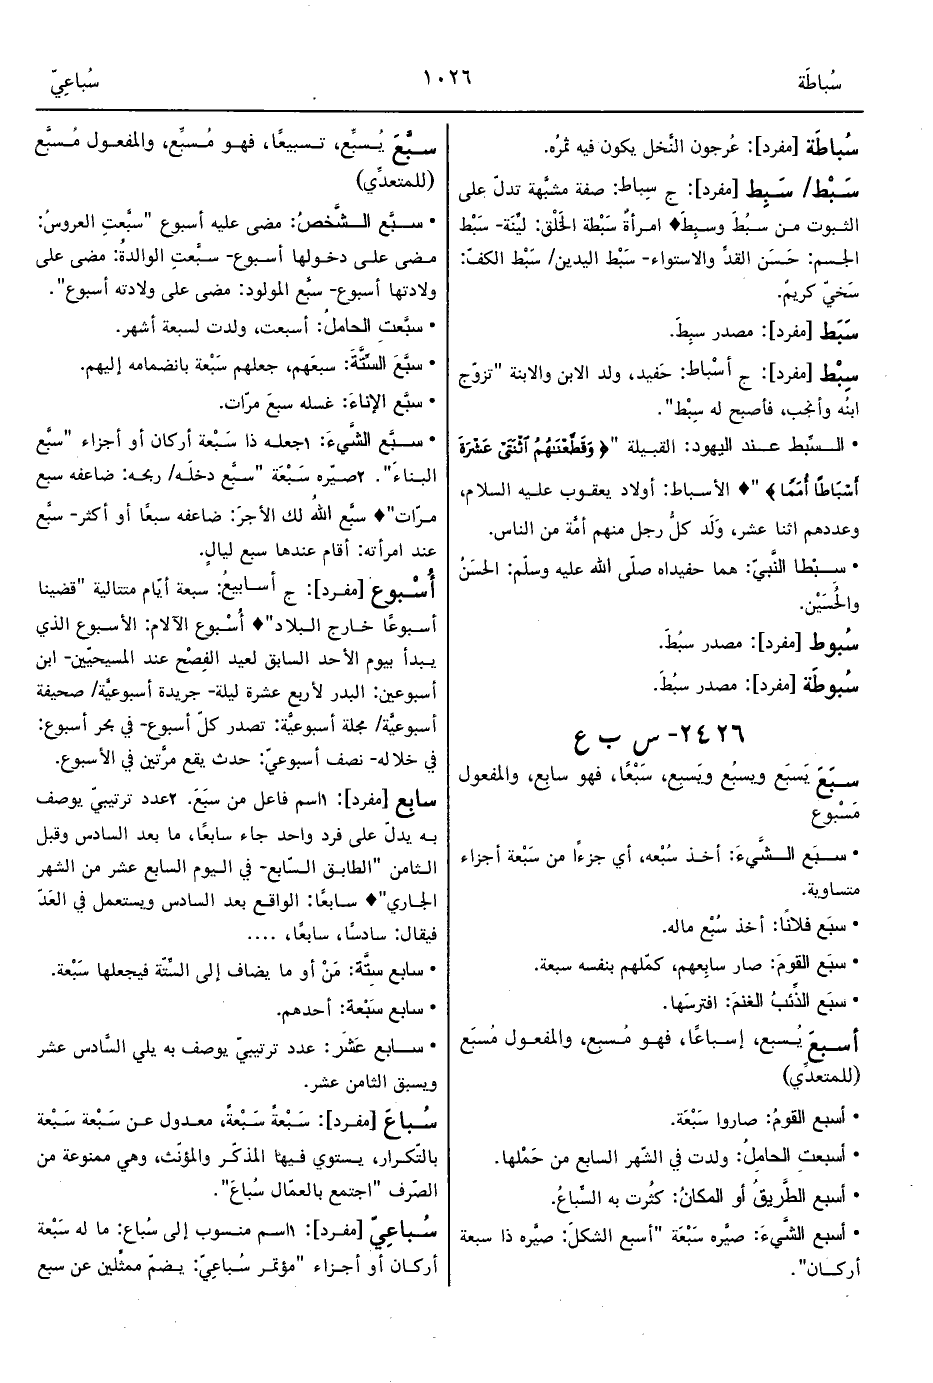 سُباطَة
١٠٢٦
سُباعِيّ
سُباطَة [مفرد]: عُرجون النَّخل يكون فيه ثمرُه.
سَبْط/ سَبِط [مفرد]: ج سِباط: صفة مشبَّهة تدلّ على
الثبوت من سبُطَ وسبِطَ♦ امرأةٌ سَبْطة الخَلْق: ليِّنَة- سَبْط
الجسم: حَسَن القدّ والاستواء- سَبْط اليدين/ سَبْط الكفّ:
سَخيّ كريمٌ.
سَبَط [مفرد]: مصدر سبِطَ.
سِبْط [مفرد]: ج أسْباط: حَفيد، ولد الابن والابنة "تزوّج
ابنُه وأنجب، فأصبح له سِبْط".
• السِّبْط عند اليهود: القبيلة "﴿ وَقَطَّعْنَٰهُمُ ٱثْنَتَيْ عَشْرَةَ
أَسْبَاطًا أُمَمًا﴾ "♦ الأسباط: أولاد يعقوب عليه السلام،
وعددهم اثنا عشر، وَلَد كلُّ رجل منهم أمَّة من الناس.
• سِبْطا النَّبيّ: هما حفيداه صلّى الله عليه وسلّم: الحَسَنُ
والحُسَيْن.
سُبوط [مفرد]: مصدر سبُطَ.
سُبوطَة [مفرد]: مصدر سبُطَ.
٢٤٢٦- س ب ع
سبَعَ يَسبَع ويسبُع ويَسبِع، سَبْعًا، فهو سابِع، والمفعول
مَسْبُوع
• سبَع الشَّيءَ: أخذ سُبْعه، أي جزءًا من سَبْعة أجزاء
متساوية.
• سبَع فلانًا: أخذ سُبْع ماله.
• سبَع القومَ: صار سابِعهم، كمّلهم بنفسه سبعة.
• سبَع الذِّئبُ الغنمَ: افترسَها.
أسبعَ يُسبع، إسباعًا، فهو مُسبِع، والمفعول مُسبَع
(للمتعدِّي)
• أسبع القومُ: صاروا سَبْعَة.
• أسبعت الحاملُ: ولدت في الشّهر السابع من حَمْلها.
• أسبع الطَّريقُ أو المكانُ: كثُرت به السِّباعُ.
• أسبع الشَّيءَ: صيَّره سَبْعَة "أسبع الشكلَ: صيَّره ذا سبعة
أركان".
سبَّعَ يُسبِّع، تسبيعًا، فهو مُسبِّع، والمفعول مُسبَّع
(للمتعدِّي)
• سبَّع الشَّخصُ: مضى عليه أسبوع "سبَّعتِ العروسُ:
مضى على دخولها أسبوع- سبَّعتِ الوالدةُ: مضى على
ولادتها أسبوع- سبَّع المولود: مضى على ولادته أسبوع".
• سبَّعتِ الحاملُ: أسبعت، ولدت لسبعة أشهر.
• سبَّعَ السِّتَّةَ: سبعَهم، جعلهم سَبْعة بانضمامه إليهم.
• سبَّع الإناءَ: غسله سبعَ مرّات.
• سبَّع الشَّيءَ: ١جعله ذا سَبْعة أركان أو أجزاء "سبَّع
البناءَ". ٢صيّره سَبْعَة "سبَّع دخلَه/ ربحَه: ضاعفه سبع
مرّات"♦ سبَّع اللهُ لك الأجرَ: ضاعفه سبعًا أو أكثر- سبَّع
عند امرأته: أقام عندها سبع ليالٍ.
أُسْبُوع [مفرد]: ج أسابيعُ: سبعة أيّام متتالية "قضينا
أسبوعًا خارج البلاد"♦ أُسْبوع الآلام: الأسبوع الذي
يبدأ بيوم الأحد السابق لعيد الفِصْح عند المسيحيّين- ابن
أسبوعين: البدر لأربع عشرة ليلة- جريدة أسبوعيَّة/ صحيفة
أسبوعيَّة/ مجلة أسبوعيَّة: تصدر كلّ أسبوع- في بحر أسبوع:
في خلاله- نصف أسبوعيّ: حدث يقع مرَّتين في الأسبوع.
سابِع [مفرد]: ١اسم فاعل من سبَعَ. ٢عدد ترتيبيّ يوصف
به يدلّ على فرد واحد جاء سابعًا، ما بعد السادس وقبل
الثامن "الطابق السّابع- في اليوم السابع عشر من الشهر
الجاري"♦ سابعًا: الواقع بعد السادس ويستعمل في العَدّ
فيقال: سادسًا، سابعًا، ....
• سابع ستَّة: مَنْ أو ما يضاف إلى السِّتَّة فيجعلها سَبْعة.
• سابع سَبْعة: أحدهم.
• سابع عَشَر: عدد ترتيبيّ يوصف به يلي السَّادس عشر
ويسبق الثامن عشر.
سُباعَ [مفرد]: سَبْعةً سَبْعةً، معدول عن سَبْعة سَبْعة
بالتكرار، يستوي فيها المذكّر والمؤنّث، وهي ممنوعة من
الصّرف "اجتمع بالعمّال سُباعَ".
سُباعِيّ [مفرد]: ١اسم منسوب إلى سُباع: ما له سَبْعة
أركان أو أجزاء "مؤتمر سُباعيّ: يضمّ ممثِّلين عن سبع